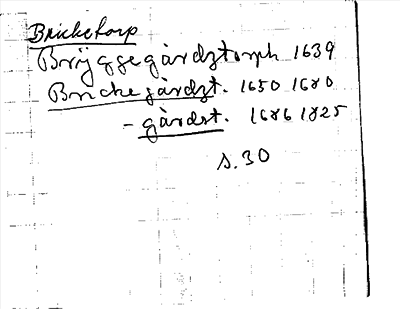 Bricketorp
Bryggegårdztorph 1639
Brickegårdzt. 1650 1680
- gårdst. 1686 1825
s. 30